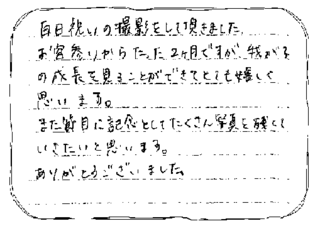 百日祝いの撮影をして頂きました。
お宮参りからたった2ヶ月ですが、我が子
の成長を見ることができてとても嬉しく
思います。
また節目に記念としてたくさん写真を残して
いきたいと思います。
ありがとうございました。